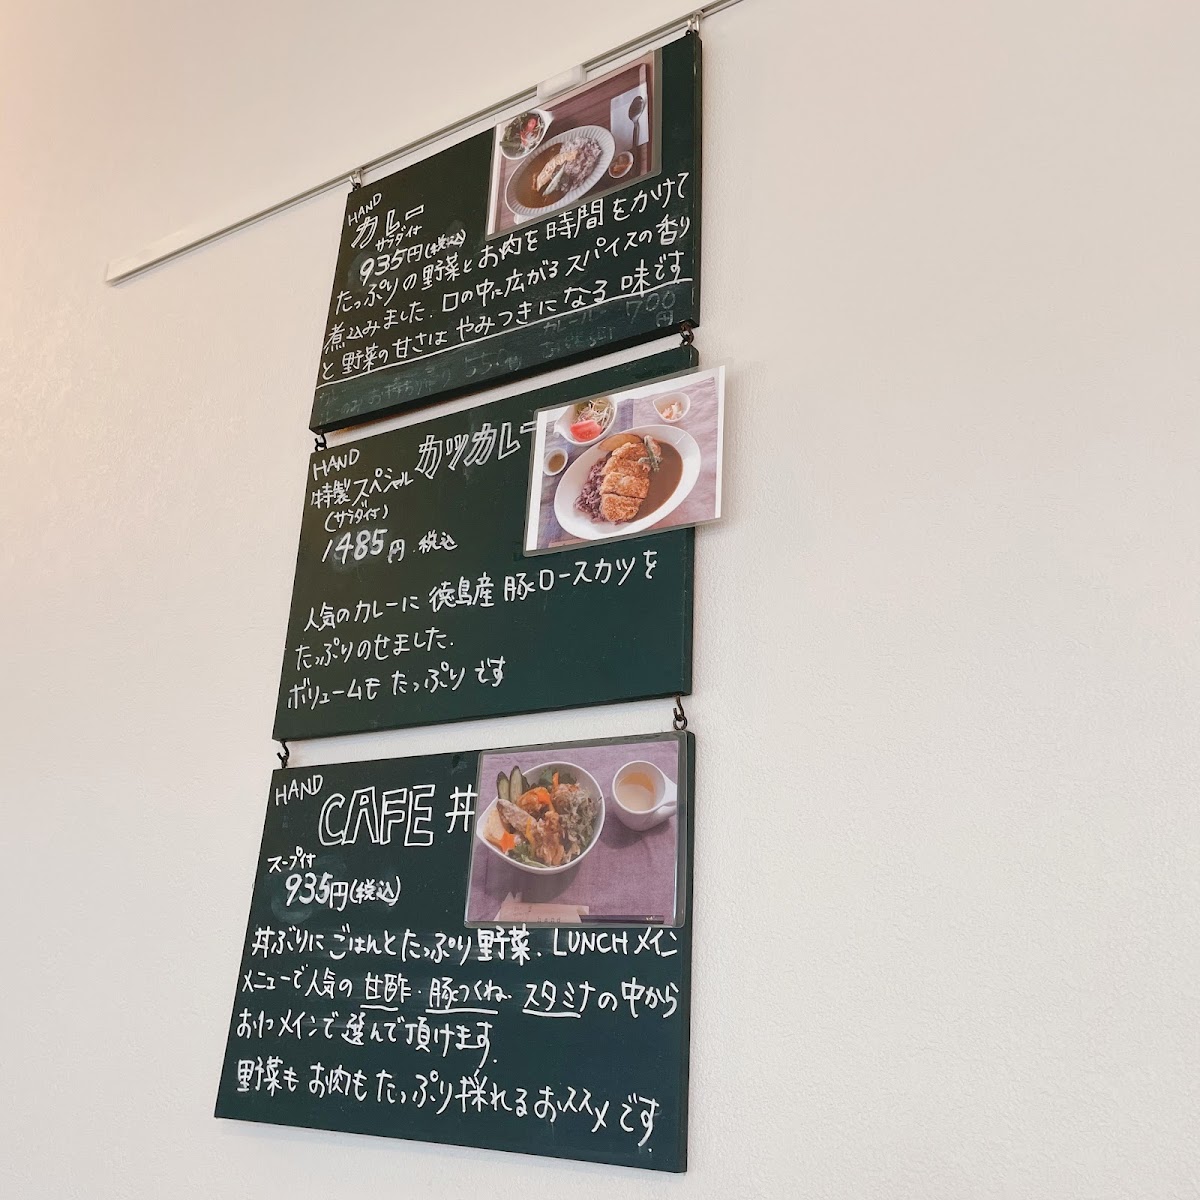 HAND
カレー
サラダ付
935円(税込)
たっぷりの野菜とお肉を時間をかけて
煮込みました。口の中に広がるスパイスの香り
と野菜の甘さはやみつきになる味です
700
円
550円
HAND
特製スペシャル カツカレー
(サラダ付)
1485円 税込
人気のカレーに徳島産豚ロースカツを
たっぷりのせました.
ボリュームもたっぷりです
HAND
CAFE丼
スープ付
935円(税込)
丼ぶりにごはんとたっぷり野菜. LUNCHメイン
メニューで人気の甘酢・豚つくね・スタミナの中から
お1つメインで選んで頂けます.
野菜もお肉もたっぷり採れるおススメです.